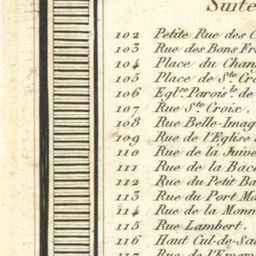 Suite
102 Petite Rue des
103 Rue des Bons
104 Place du
105 Place de Ste
106 Eglse Paroisle de
107 Rue Ste Croix.
108 Rue Belle-Imag
109 Rue de l'Eglise
110 Rue de la
111 Rue de la
112 Rue du Petit
113 Rue du Port
114 Rue de la
115 Rue Lambert.
116 Haut Cul-de-Sa
117